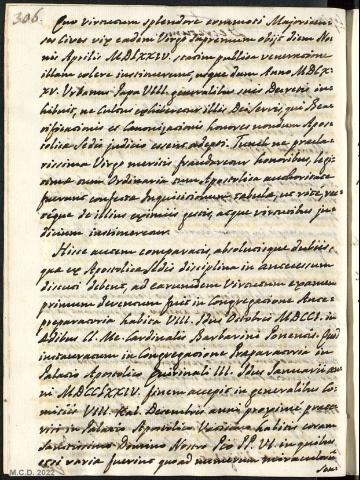 306.
Quo virtutum splendore commoti Majoricen-
ses Cives vix eadem Virgo supremum obijt diem No-
nis Aprilis MDLXXIV. statim publica veneratione
illam colere institerunt, usque dum Anno MDCX-
XV. Urbanus Papa VIII. generalibus suis Decretis in-
hibuit, ne Cultus exhiberetur illis Dei Servis, qui Bea-
tificationis et Canonizationis honores nondum Apos-
tolicæ Sedis judicio essent adepti. Tunc ne præcla-
rissimæ Virgo meritis fraudaretur honoribus, legi-
timæ tum Ordinaria tum Apostolica authoritate
fuerunt confectæ Inquisitionum tabulæ, ut rite, rec-
teque de illius eximiis gestis, atque virtutibus ju-
dicium institueretur.
Hisce autem comparatis, absolutisque dubiis,
quæ ex Apostolicæ Sedis disciplina in antecessum
discuti debent, ad earumdem Virtutum examen
primum deventum fuit in Congregatione Ante-
præparatoria habita VIII. Idus Octobris MDCCL. in
Ædibus Cl. Me. Cardinalis Barbarini Ponentis. Quod
instauratum in Congregatione Præparatoria in
Palatio Apostolico Quirinali III. Idus Januarii an-
ni MDCCLXXIV. finem accepit in generalibus Co-
mitiis VIII. Kal. Decembris anni proxime præte-
riti in Palatio Apostolico Vaticano habitis coram
Sanctissimo Domino Nostro Pio PP. VI. in quibus
etsi varia fuerint quoad numerum miraculorum
M.C.D. 2022